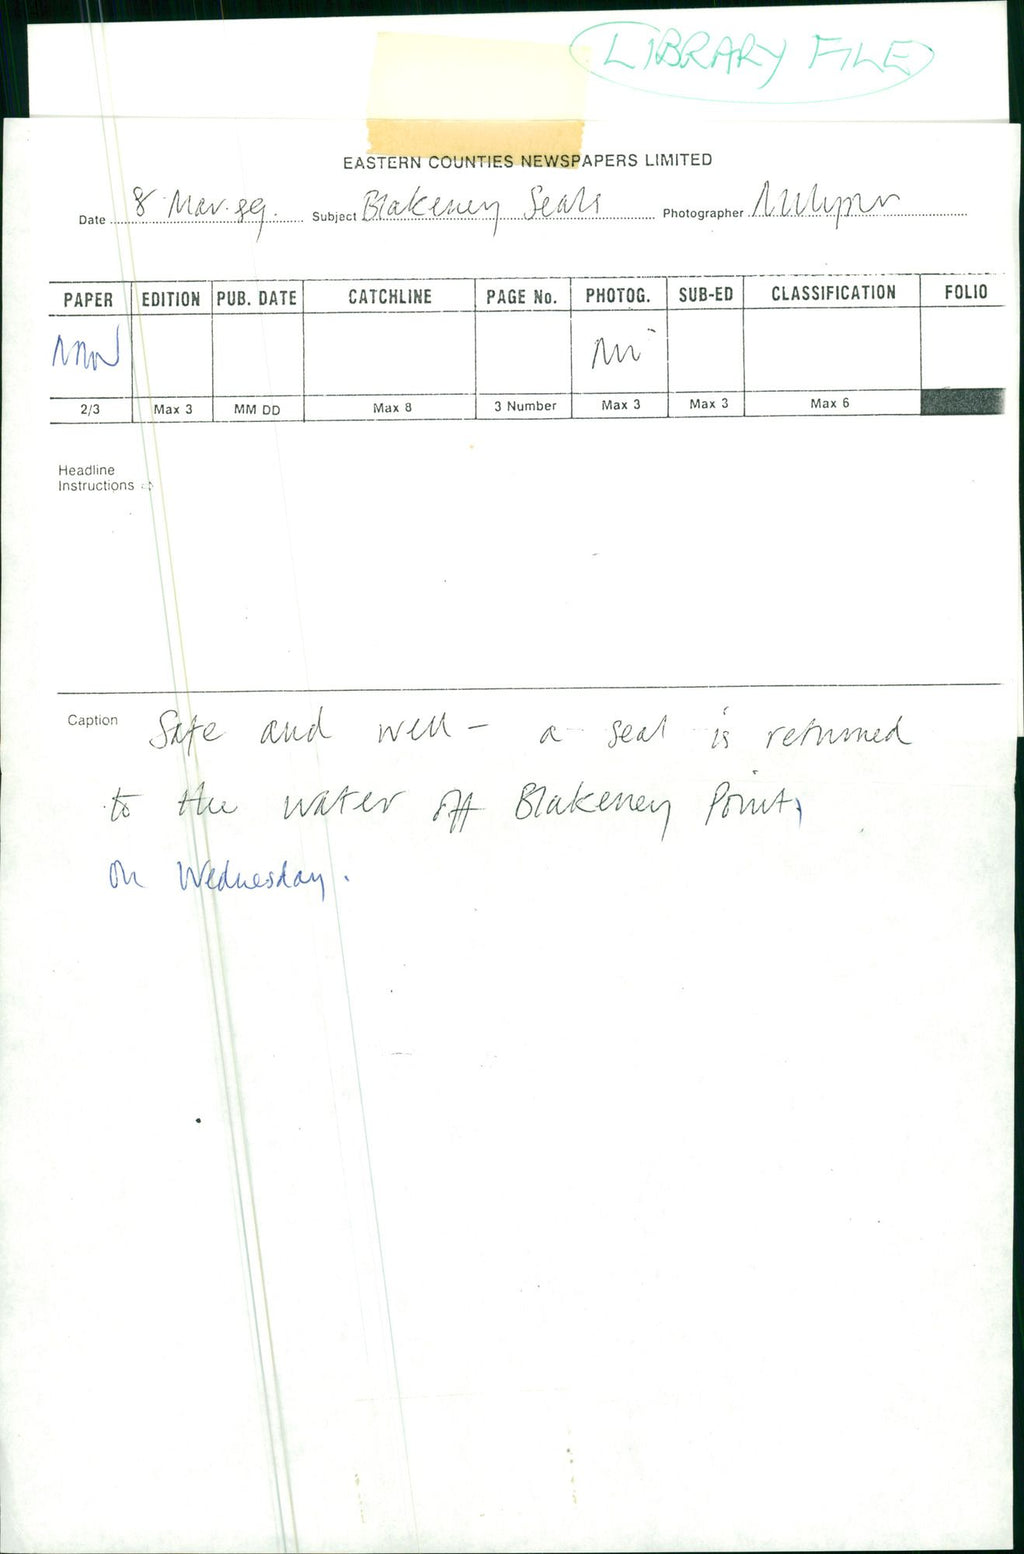 LIBRARY FILE
EASTERN COUNTIES NEWSPAPERS LIMITED
Date 8 Mar. 89. Subject Blakeney Seals Photographer
PAPER EDITION PUB. DATE CATCHLINE PAGE No. PHOTOG. SUB-ED CLASSIFICATION FOLIO
2/3 Max 3 MM DD Max 8 3 Number Max 3 Max 3 Max 6
Headline
Instructions ⇨
Caption Safe and well – a seal is returned
to the water off Blakeney Point,
on Wednesday.